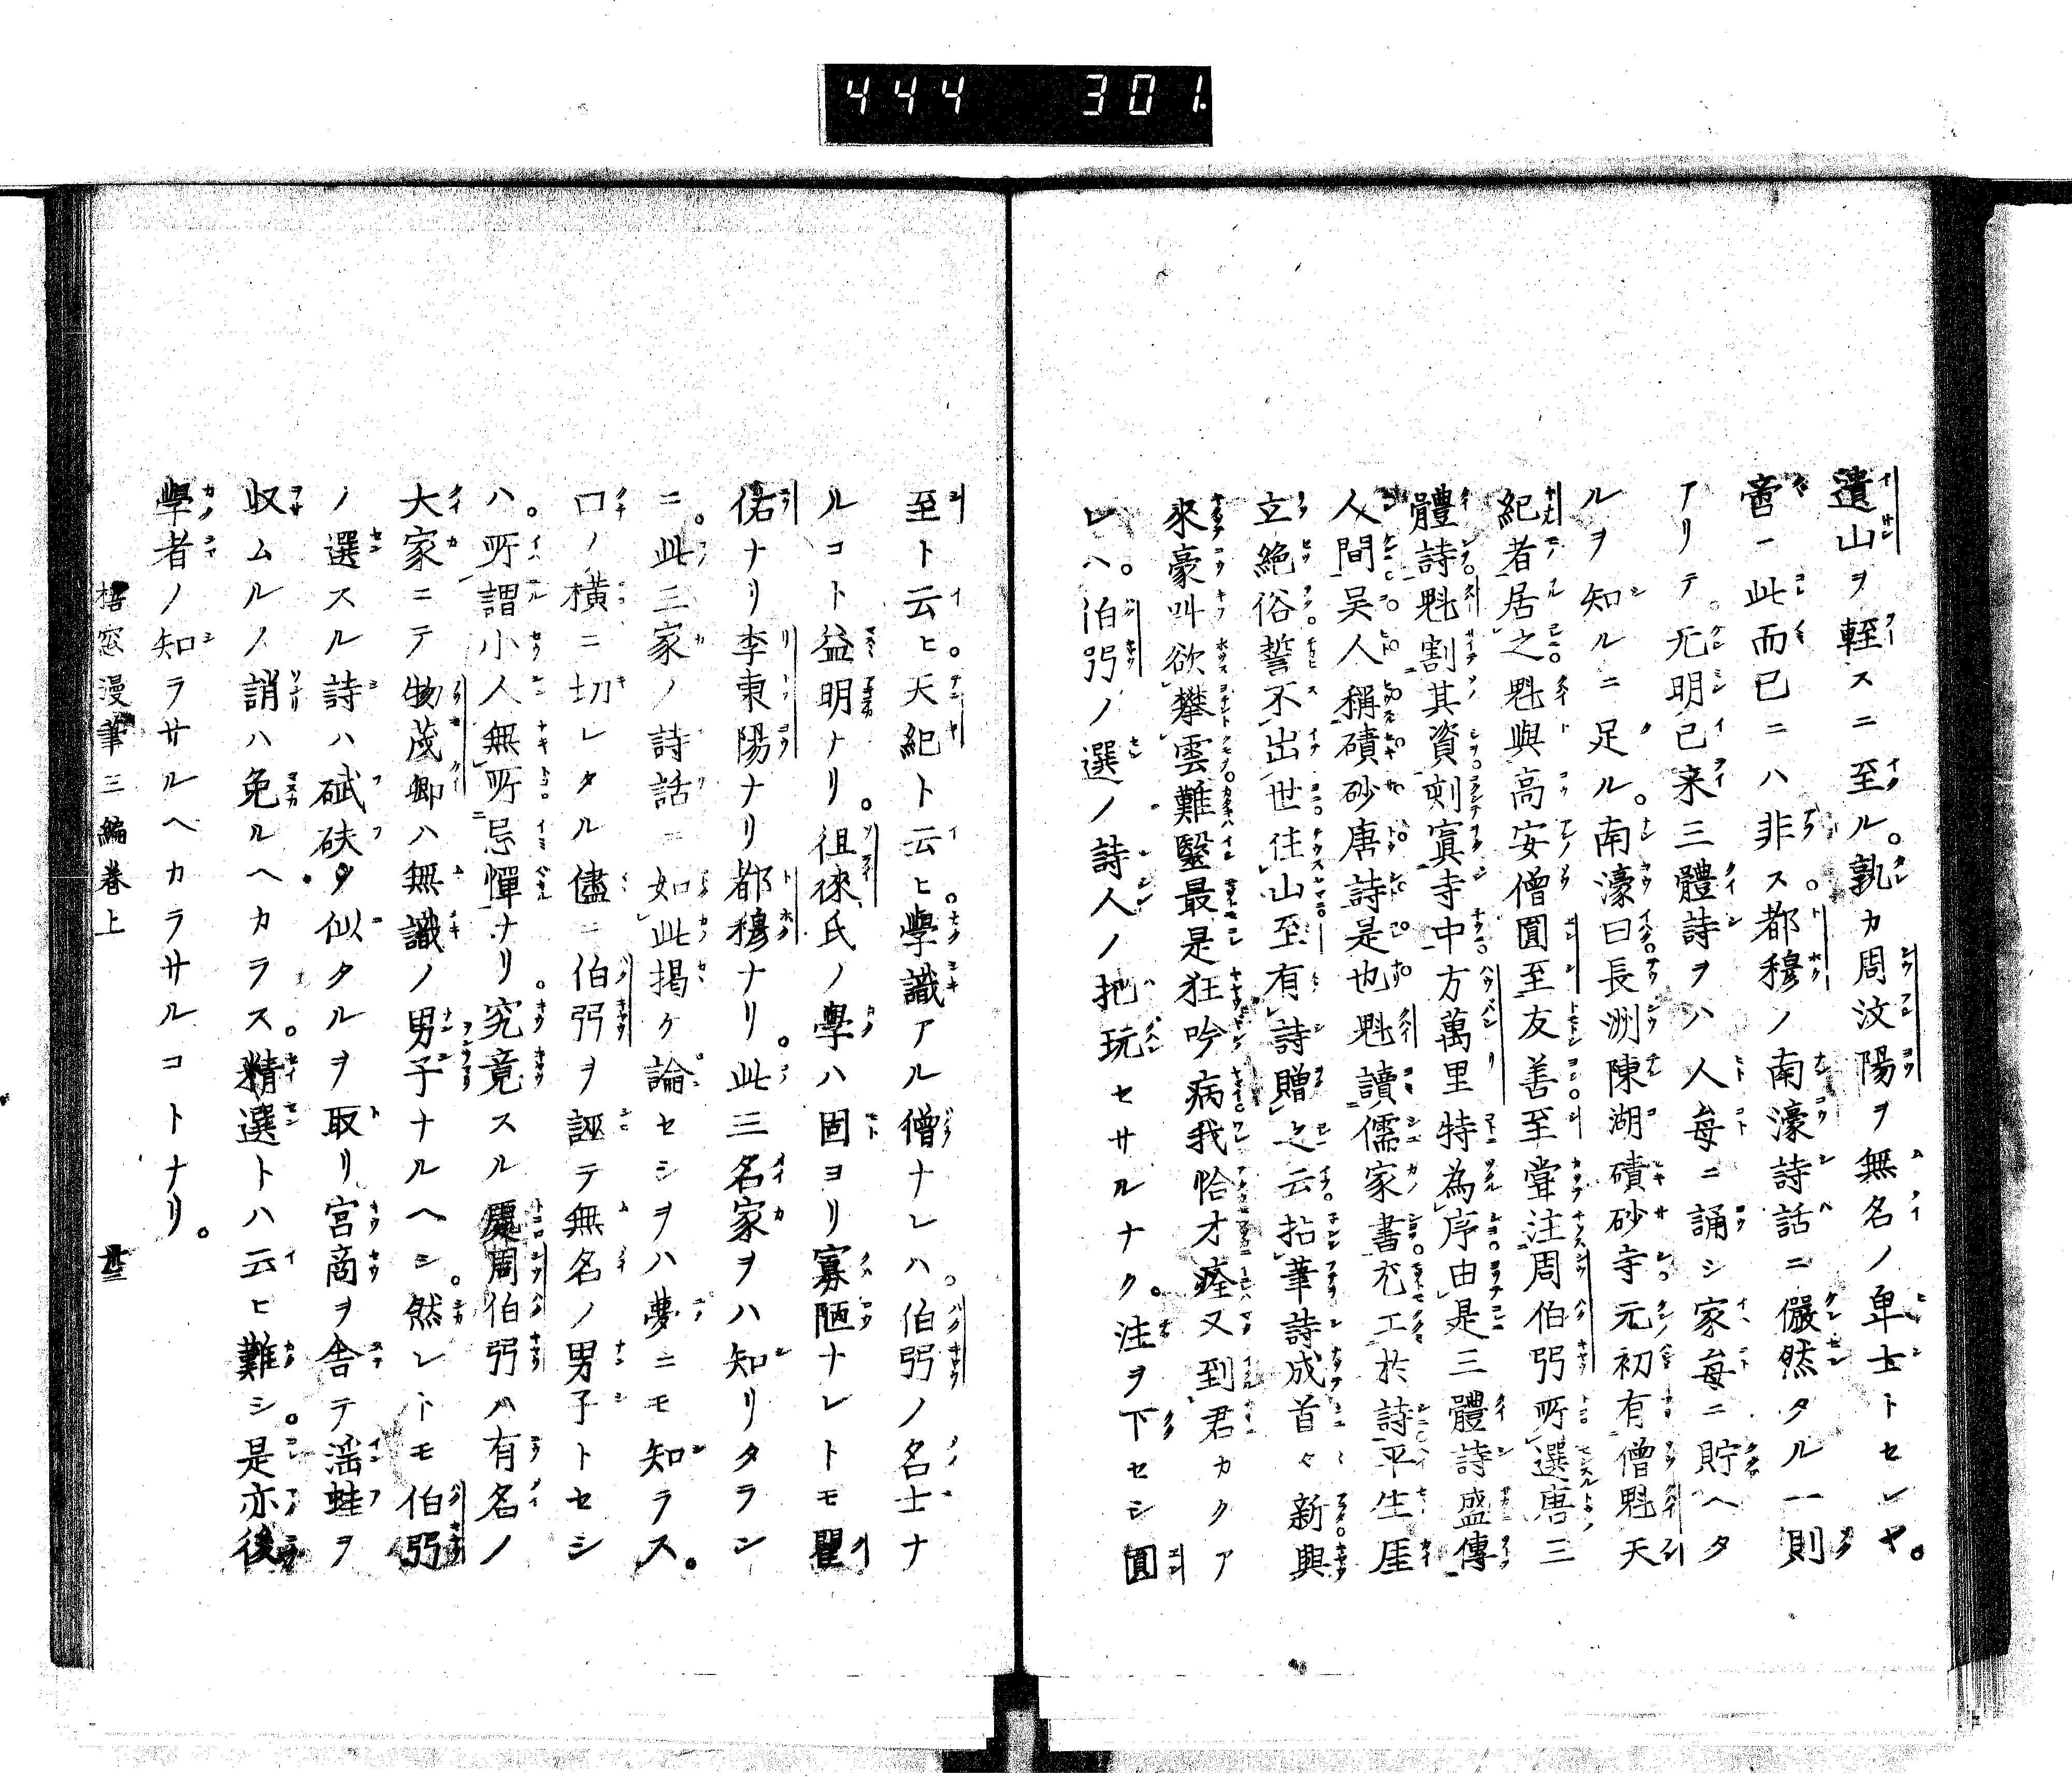 444 301
遺山ヲ輊スニ至ル。孰カ周汶陽ヲ無名ノ卑士トセンヤ。
啻ニ此而已ニハ非ス都穆ノ南濠詩話ニ儼然タル一則
アリテ。元明已来三體詩ヲハ人毎ニ誦シ家毎ニ貯ヘタ
ルヲ知ルニ足ル。南濠曰長洲陳湖磧砂寺元初有僧魁天
紀者居之魁與高安僧圓至友善至嘗注周伯弜所選唐三
體詩魁割其資刻寘寺中方萬里特為序由是三體詩盛傳
人間吴人稱磧砂唐詩是也魁讀儒家書尤工於詩平生厓
立絶俗誓不出世住山至有詩贈之云拈筆詩成首々新興
來豪叫欲攀雲難毉最是狂吟病我恰才痊又到君カクア
レハ。伯弜ノ選ノ詩人ノ把玩セサルナク。注ヲ下セシ圓
至ト云ヒ。天紀ト云ヒ。學識アル僧ナレハ。伯弜ノ名士ナ
ルコト益明ナリ。徂徠氏ノ學ハ固ヨリ寡陋ナレトモ瞿
佑ナリ李東陽ナリ都穆ナリ。此三名家ヲハ知リタラン
ニ。此三家ノ詩話ニ如此掲ケ論セシヲハ夢ニモ知ラス。
口ノ横ニ切レタル儘ニ伯弜ヲ誣テ無名ノ男子トセシ
ハ。所謂小人無所忌憚ナリ。究竟スル處周伯弜ハ有名ノ
大家ニテ物茂卿ハ無識ノ男子ナルヘシ。然レトモ伯弜
ノ選スル詩ハ碔砆ノ似タルヲ取リ宮商ヲ舎テ滛蛙ヲ
収ムルノ誚ハ免ルヘカラス。精選トハ云ヒ難シ。是亦後
學者ノ知ラサルヘカラサルコトナリ。
楛窓漫筆三編巻上